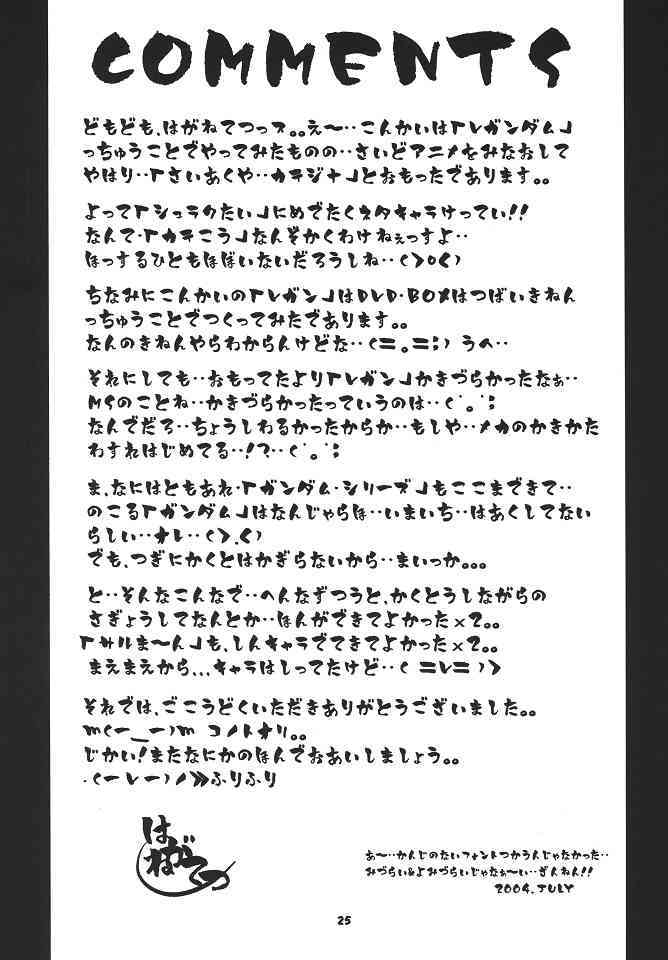 COMMENTS
どもども、はがねてつっス｡｡え～‥こんかいは「Vガンダム」
っちゅうことでやってみたものの‥さいどアニメをみなおして
やはり‥「さいあくや‥カテジナ」とおもったであります｡｡
よって「シュラクたい」にめでたくネタキャラけってい!!
なんで・「カテこう」なんぞかくわけねぇっすよ‥
ほっするひともほぼいないだろうしね‥(>o<)
ちなみにこんかいの「Vガン」はDVD・BOXはつばいきねん
っちゅうことでつくってみたであります｡｡
なんのきねんやらわからんけどな‥(=｡=;) うへ‥
それにしても‥おもってたより「Vガン」かきづらかったなぁ‥
MSのことね‥かきづらかったっていうのは‥(ﾟ｡ﾟ;
なんでだろ‥ちょうしわるかったからか‥もしや‥メカのかきかた
わすれはじめてる‥!?‥(ﾟ｡ﾟ;
ま、なにはともあれ・「ガンダム・シリーズ」もここまできて‥
のこる「ガンダム」はなんじゃらほ‥いまいち‥はあくしてない
らしい‥オレ‥(>.<)
でも、つぎにかくとはかぎらないから‥まいっか｡｡｡
と‥そんなこんなで‥へんなずつうと、かくとうしながらの
さぎょうしてなんとか‥ほんができてよかった×2｡｡
「サルま～ん」も、しんキャラでてきてよかった×2｡｡
まえまえから...キャラはしってたけど‥( =V= )>
それでは、ごこうどくいただきありがとうございました｡｡
m(ー__ー)m コノトオリ｡｡
じかい!またなにかのほんでおあいしましょう｡｡
・(ーVー)ノ》ふりふり
はがねてつ
あ～‥かんじのないフォントつかうんじゃなかった‥
みづらい&よみづらいじゃなぁ～い‥ざんねん!!
2004.JULY
25